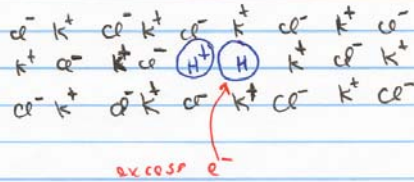 Cl⁻ K⁺ Cl⁻ K⁺ Cl⁻ K⁺ Cl⁻ K⁺ Cl⁻
K⁺ Cl⁻ K⁺ Cl⁻ H⁺ H K⁺ Cl⁻ K⁺
Cl⁻ K⁺ Cl⁻ K⁺ Cl⁻ K⁺ Cl⁻ K⁺ Cl⁻
excess e⁻